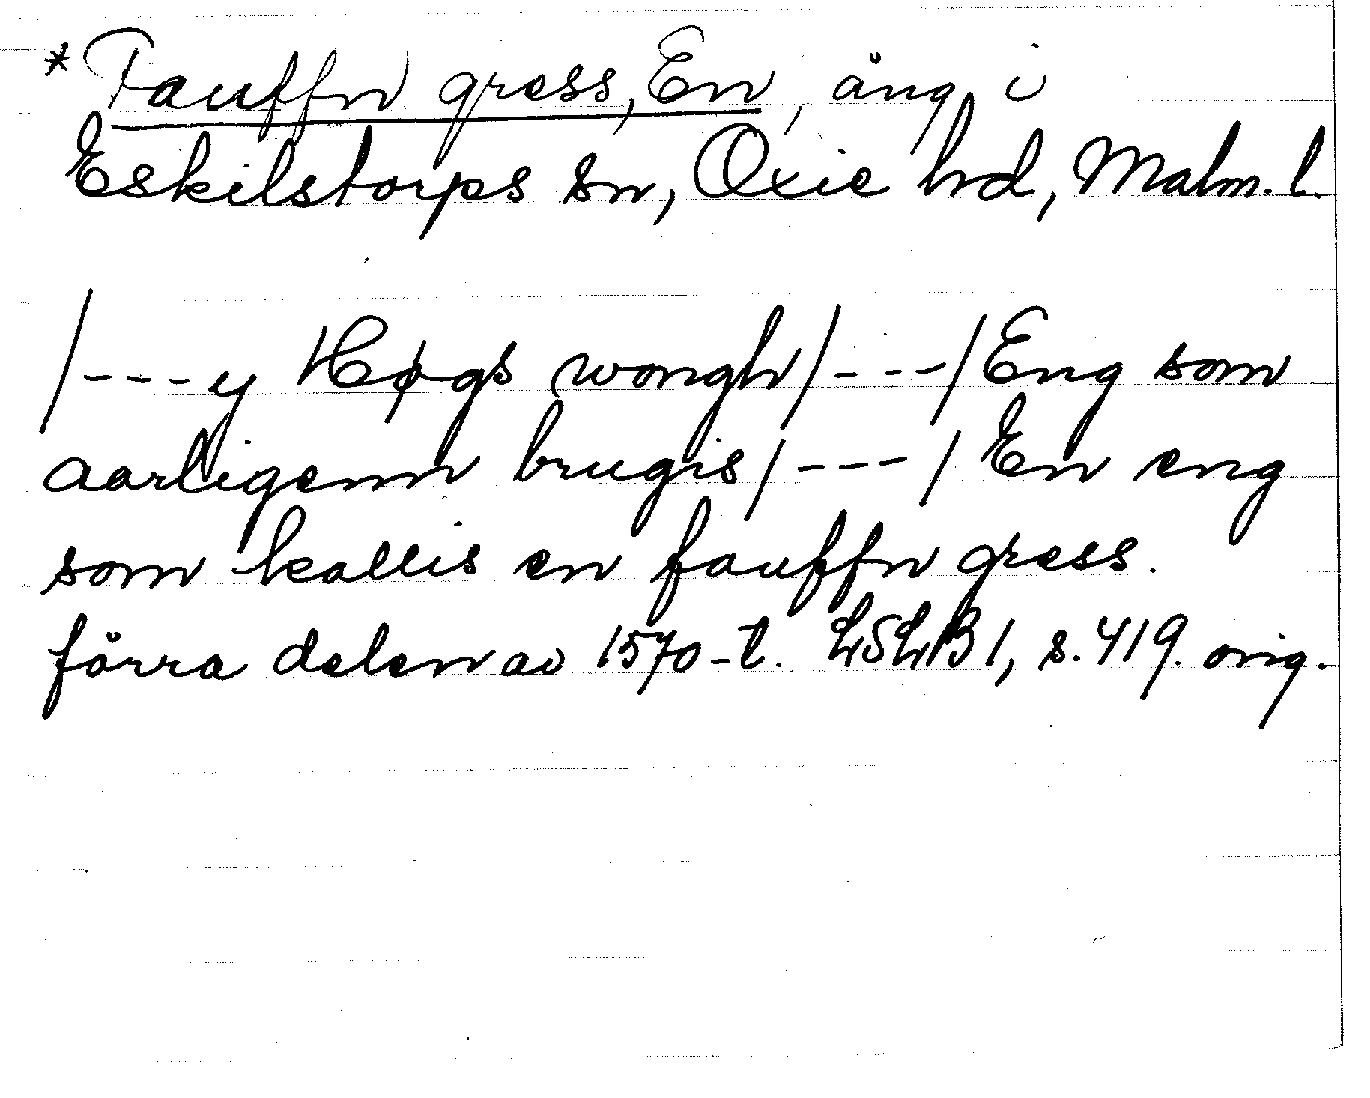 * Fauffn gress, En, äng i
Eskilstorps sn, Oxie hd, Malm. l.
/---y Høgs wongh/---/Eng som
aarligenn brugis/---/En eng
som kallis en fauffn gress.
förra delen av 1570-t. LSLB 1, s. 419. orig.